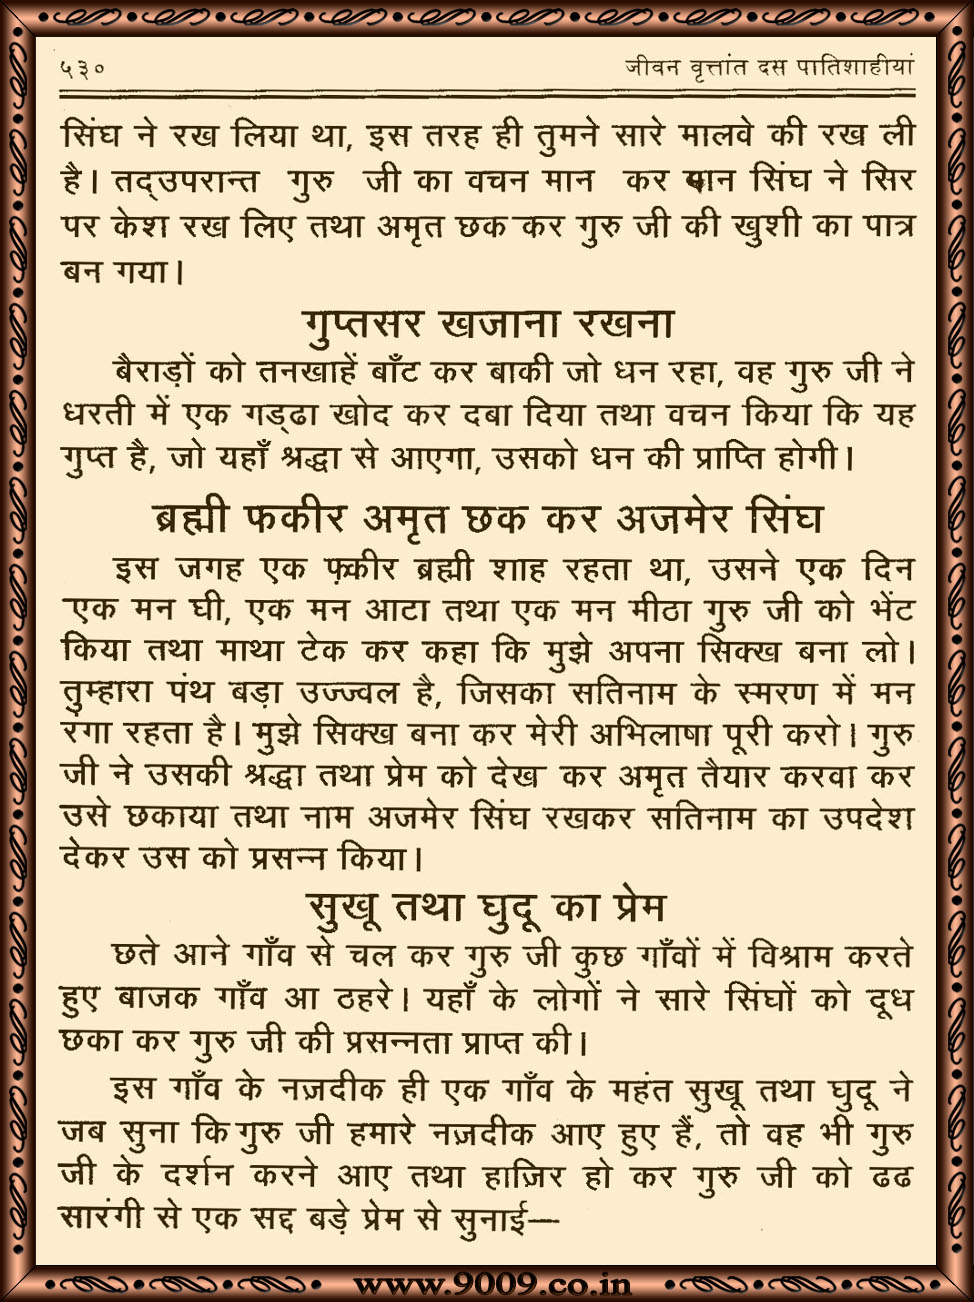 ५३०
जीवन वृत्तांत दस पातिशाहीयां
सिंघ ने रख लिया था, इस तरह ही तुमने सारे मालवे की रख ली
है। तद्उपरान्त गुरु जी का वचन मान कर मान सिंघ ने सिर
पर केश रख लिए तथा अमृत छक कर गुरु जी की खुशी का पात्र
बन गया।
गुप्तसर खजाना रखना
बैराड़ों को तनखाहें बाँट कर बाकी जो धन रहा, वह गुरु जी ने
धरती में एक गड्ढा खोद कर दबा दिया तथा वचन किया कि यह
गुप्त है, जो यहाँ श्रद्धा से आएगा, उसको धन की प्राप्ति होगी।
ब्रह्मी फकीर अमृत छक कर अजमेर सिंघ
इस जगह एक फ़कीर ब्रह्मी शाह रहता था, उसने एक दिन
एक मन घी, एक मन आटा तथा एक मन मीठा गुरु जी को भेंट
किया तथा माथा टेक कर कहा कि मुझे अपना सिक्ख बना लो।
तुम्हारा पंथ बड़ा उज्ज्वल है, जिसका सतिनाम के स्मरण में मन
रंगा रहता है। मुझे सिक्ख बना कर मेरी अभिलाषा पूरी करो। गुरु
जी ने उसकी श्रद्धा तथा प्रेम को देख कर अमृत तैयार करवा कर
उसे छकाया तथा नाम अजमेर सिंघ रखकर सतिनाम का उपदेश
देकर उस को प्रसन्न किया।
सुखू तथा घुदू का प्रेम
छते आने गाँव से चल कर गुरु जी कुछ गाँवों में विश्राम करते
हुए बाजक गाँव आ ठहरे। यहाँ के लोगों ने सारे सिंघों को दूध
छका कर गुरु जी की प्रसन्नता प्राप्त की।
इस गाँव के नज़दीक ही एक गाँव के महंत सुखू तथा घुदू ने
जब सुना कि गुरु जी हमारे नज़दीक आए हुए हैं, तो वह भी गुरु
जी के दर्शन करने आए तथा हाज़िर हो कर गुरु जी को ढढ
सारंगी से एक सद्द बड़े प्रेम से सुनाई—
www.9009.co.in